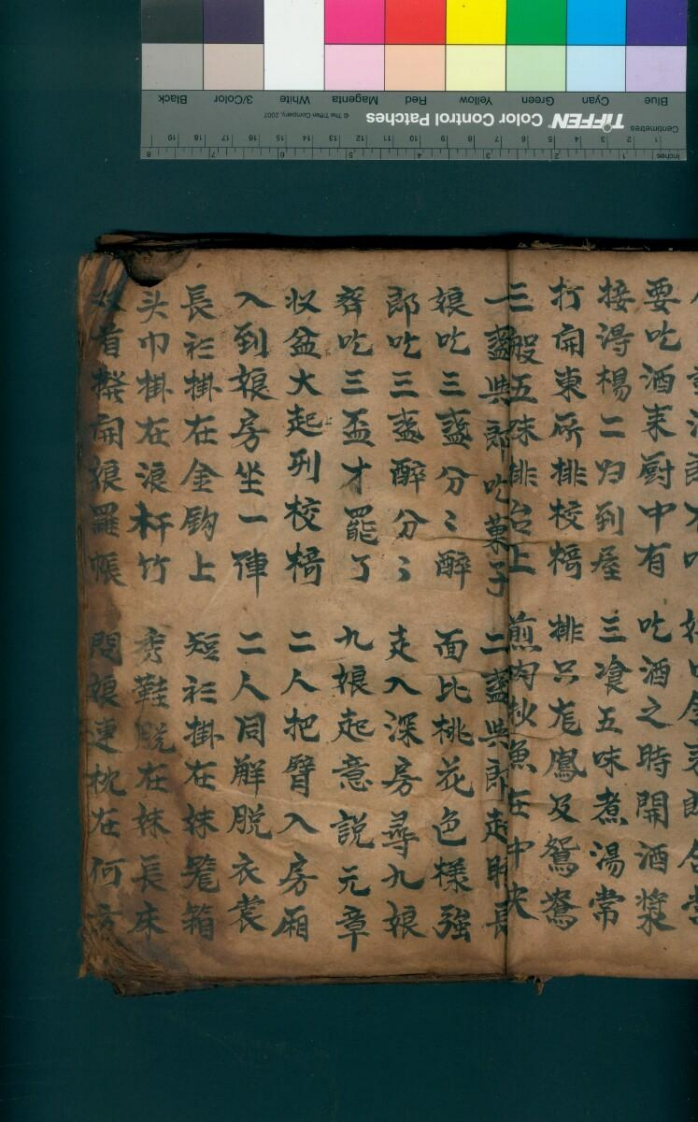 要吃酒来厨中有 吃酒之時開酒漿
接淂楊二归到屋 三飡五味煮湯常
打開東所排校椅 排只龙鳳及鴛鴦
三殿五味排台上 煎肉炒魚在中央
一盞與郎吃菓子 二盞與郎走時長
娘吃三盞分〻醉 面比桃花色樣强
郎吃三盞醉分〻 走入深房尋九娘
齊吃三盃才罷了 九娘起意說元章
収盆大起列校椅 二人把臂入房厢
入到娘房坐一陣 二人同解脱衣裳
長衫掛在金鈎上 短衫掛在妹 箱
头巾掛在浪杆竹 秀鞋脱在妹長床
首撥開娘羅帳 問娘連枕在何方
TIFFEN Color Control Patches
© The Tiffen Company, 2007
Blue Cyan Green Yellow Red Magenta White 3/Color Black
Centimetres
Inches